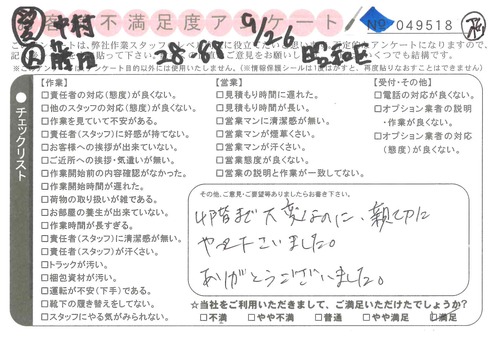 客様不満足度アンケート
No 049518
営 中村
9/26
28-88
チェックリスト
【作業】
□責任者の対応(態度)が良くない。
□他のスタッフの対応(態度)が良くない。
□作業を見ていて不安がある。
□責任者(スタッフ)に好感が持てない。
□お客様への挨拶が出来ていない。
□ご近所への挨拶・気遣いが無い。
□作業開始前の内容確認がなかった。
□作業開始時間が遅れた。
□荷物の取り扱いが雑である。
□お部屋の養生が出来ていない。
□作業時間が長すぎる。
□責任者(スタッフ)に清潔感が無い。
□責任者(スタッフ)が汗くさい。
□トラックが汚い。
□梱包資材が汚い。
□運転が不安(下手)である。
□靴下の履き替えをしてない。
□スタッフにやる気がみられない。
【営業】
□見積もり時間に遅れた。
□見積もり時間が長い。
□営業マンに清潔感が無い。
□営業マンが煙草くさい。
□営業マンが汗くさい。
□営業態度が良くない。
□営業の説明と作業が一致してない。
【受付・その他】
□電話の対応が良くない。
□オプション業者の説明・作業が良くない。
□オプション業者の対応(態度)が良くない。
その他、ご意見・ご要望等ありましたらお書き下さい。
4階まで大変なのに、親切に
やって下さいました。
ありがとうございました。
☆当社をご利用いただきまして、ご満足いただけたでしょうか?
□不満 □やや不満 □普通 □やや満足 □満足